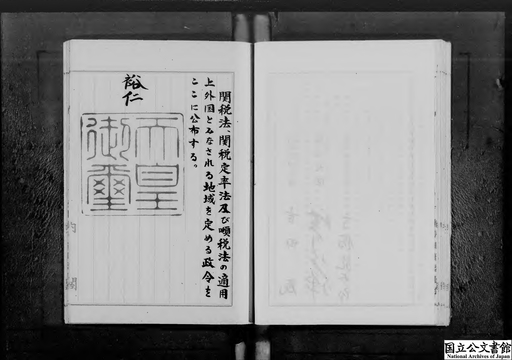 関税法、関税定率法及び噸税法の適用
上外国とみなされる地域を定める政令を
ここに公布する。
裕仁
天皇
御璽
内
閣
国立公文書館
National Archives of Japan